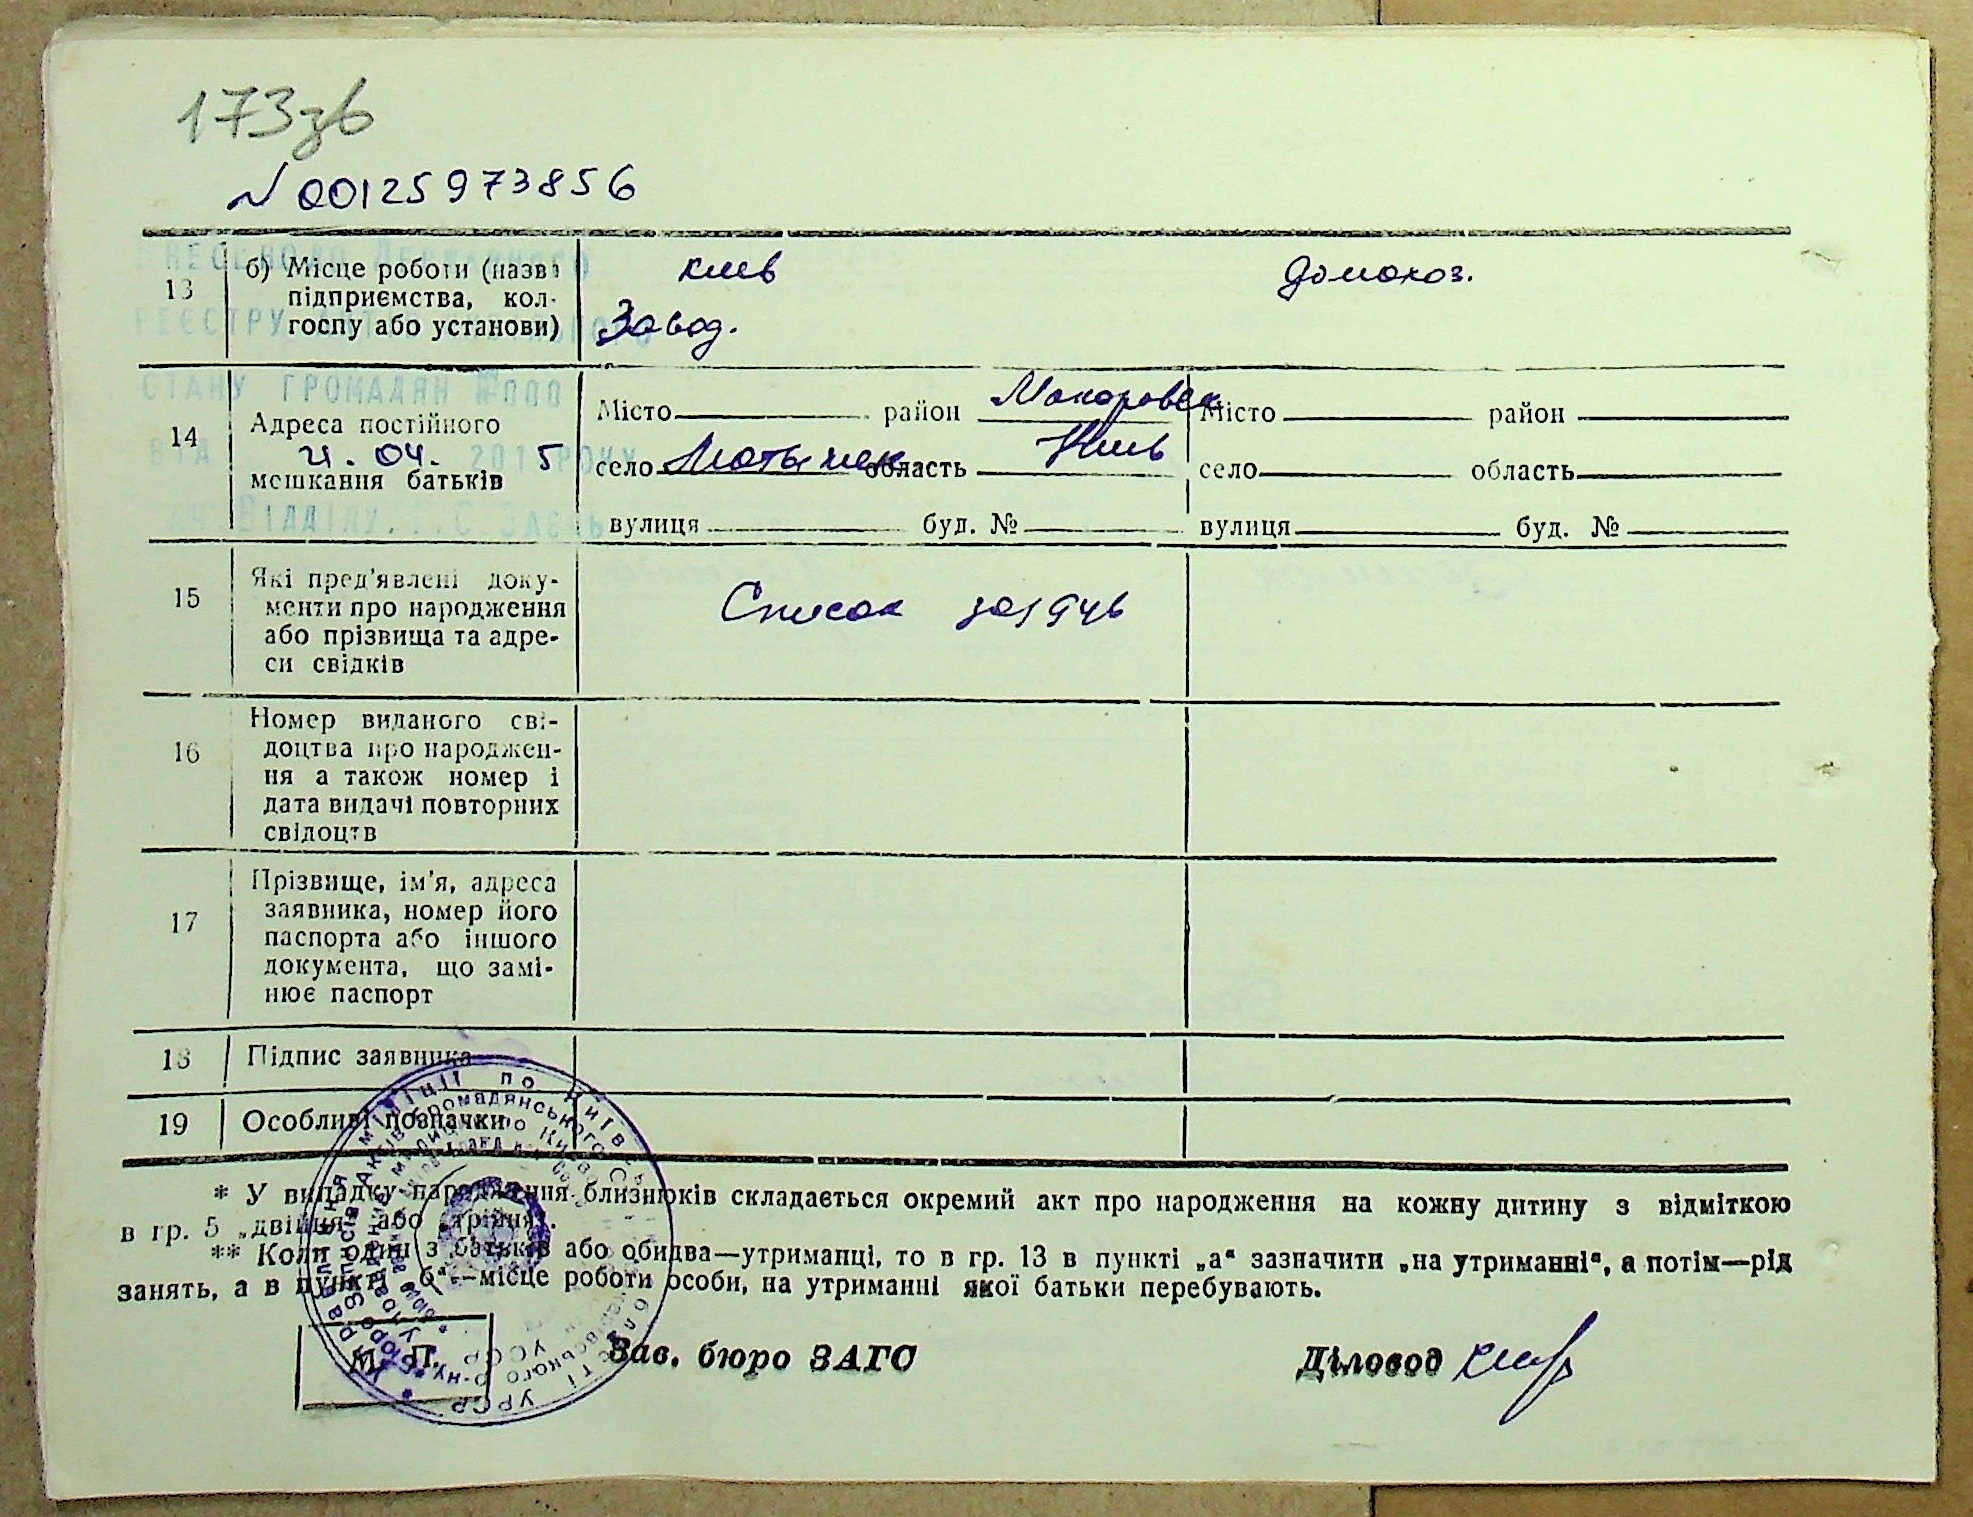 173зв
N 00125973856
13 б) Місце роботи (назва
підприємства, кол-
госпу або установи)
Киев
Завод.
домохоз.
14 Адреса постійного
мешкання батьків
Місто район Макоровск
село область Киев
вулиця буд. №
Місто район
село область
вулиця буд. №
РЕЄСТРУ
СТАНУ ГРОМАДЯН №000
ВІД 21.04. 2015 РОКУ
15 Які пред'явлені доку-
менти про народження
або прізвища та адре-
си свідків
Список
16 Номер виданого сві-
доцтва про народжен-
ня а також номер і
дата видачі повторних
свідоцтв
17 Прізвище, ім'я, адреса
заявника, номер його
паспорта або іншого
документа, що замі-
нює паспорт
18 Підпис заявника
19 Особливі позначки
* У випадку народження близнюків складається окремий акт про народження на кожну дитину з відміткою
в гр. 5 „двійня“ або „трійня“.
** Коли один з батьків або обидва—утриманці, то в гр. 13 в пункті „а“ зазначити „на утриманні“, а потім—рід
занять, а в пункті „б“—місце роботи особи, на утриманні якої батьки перебувають.
М. П.
Зав. бюро ЗАГС
Діловод